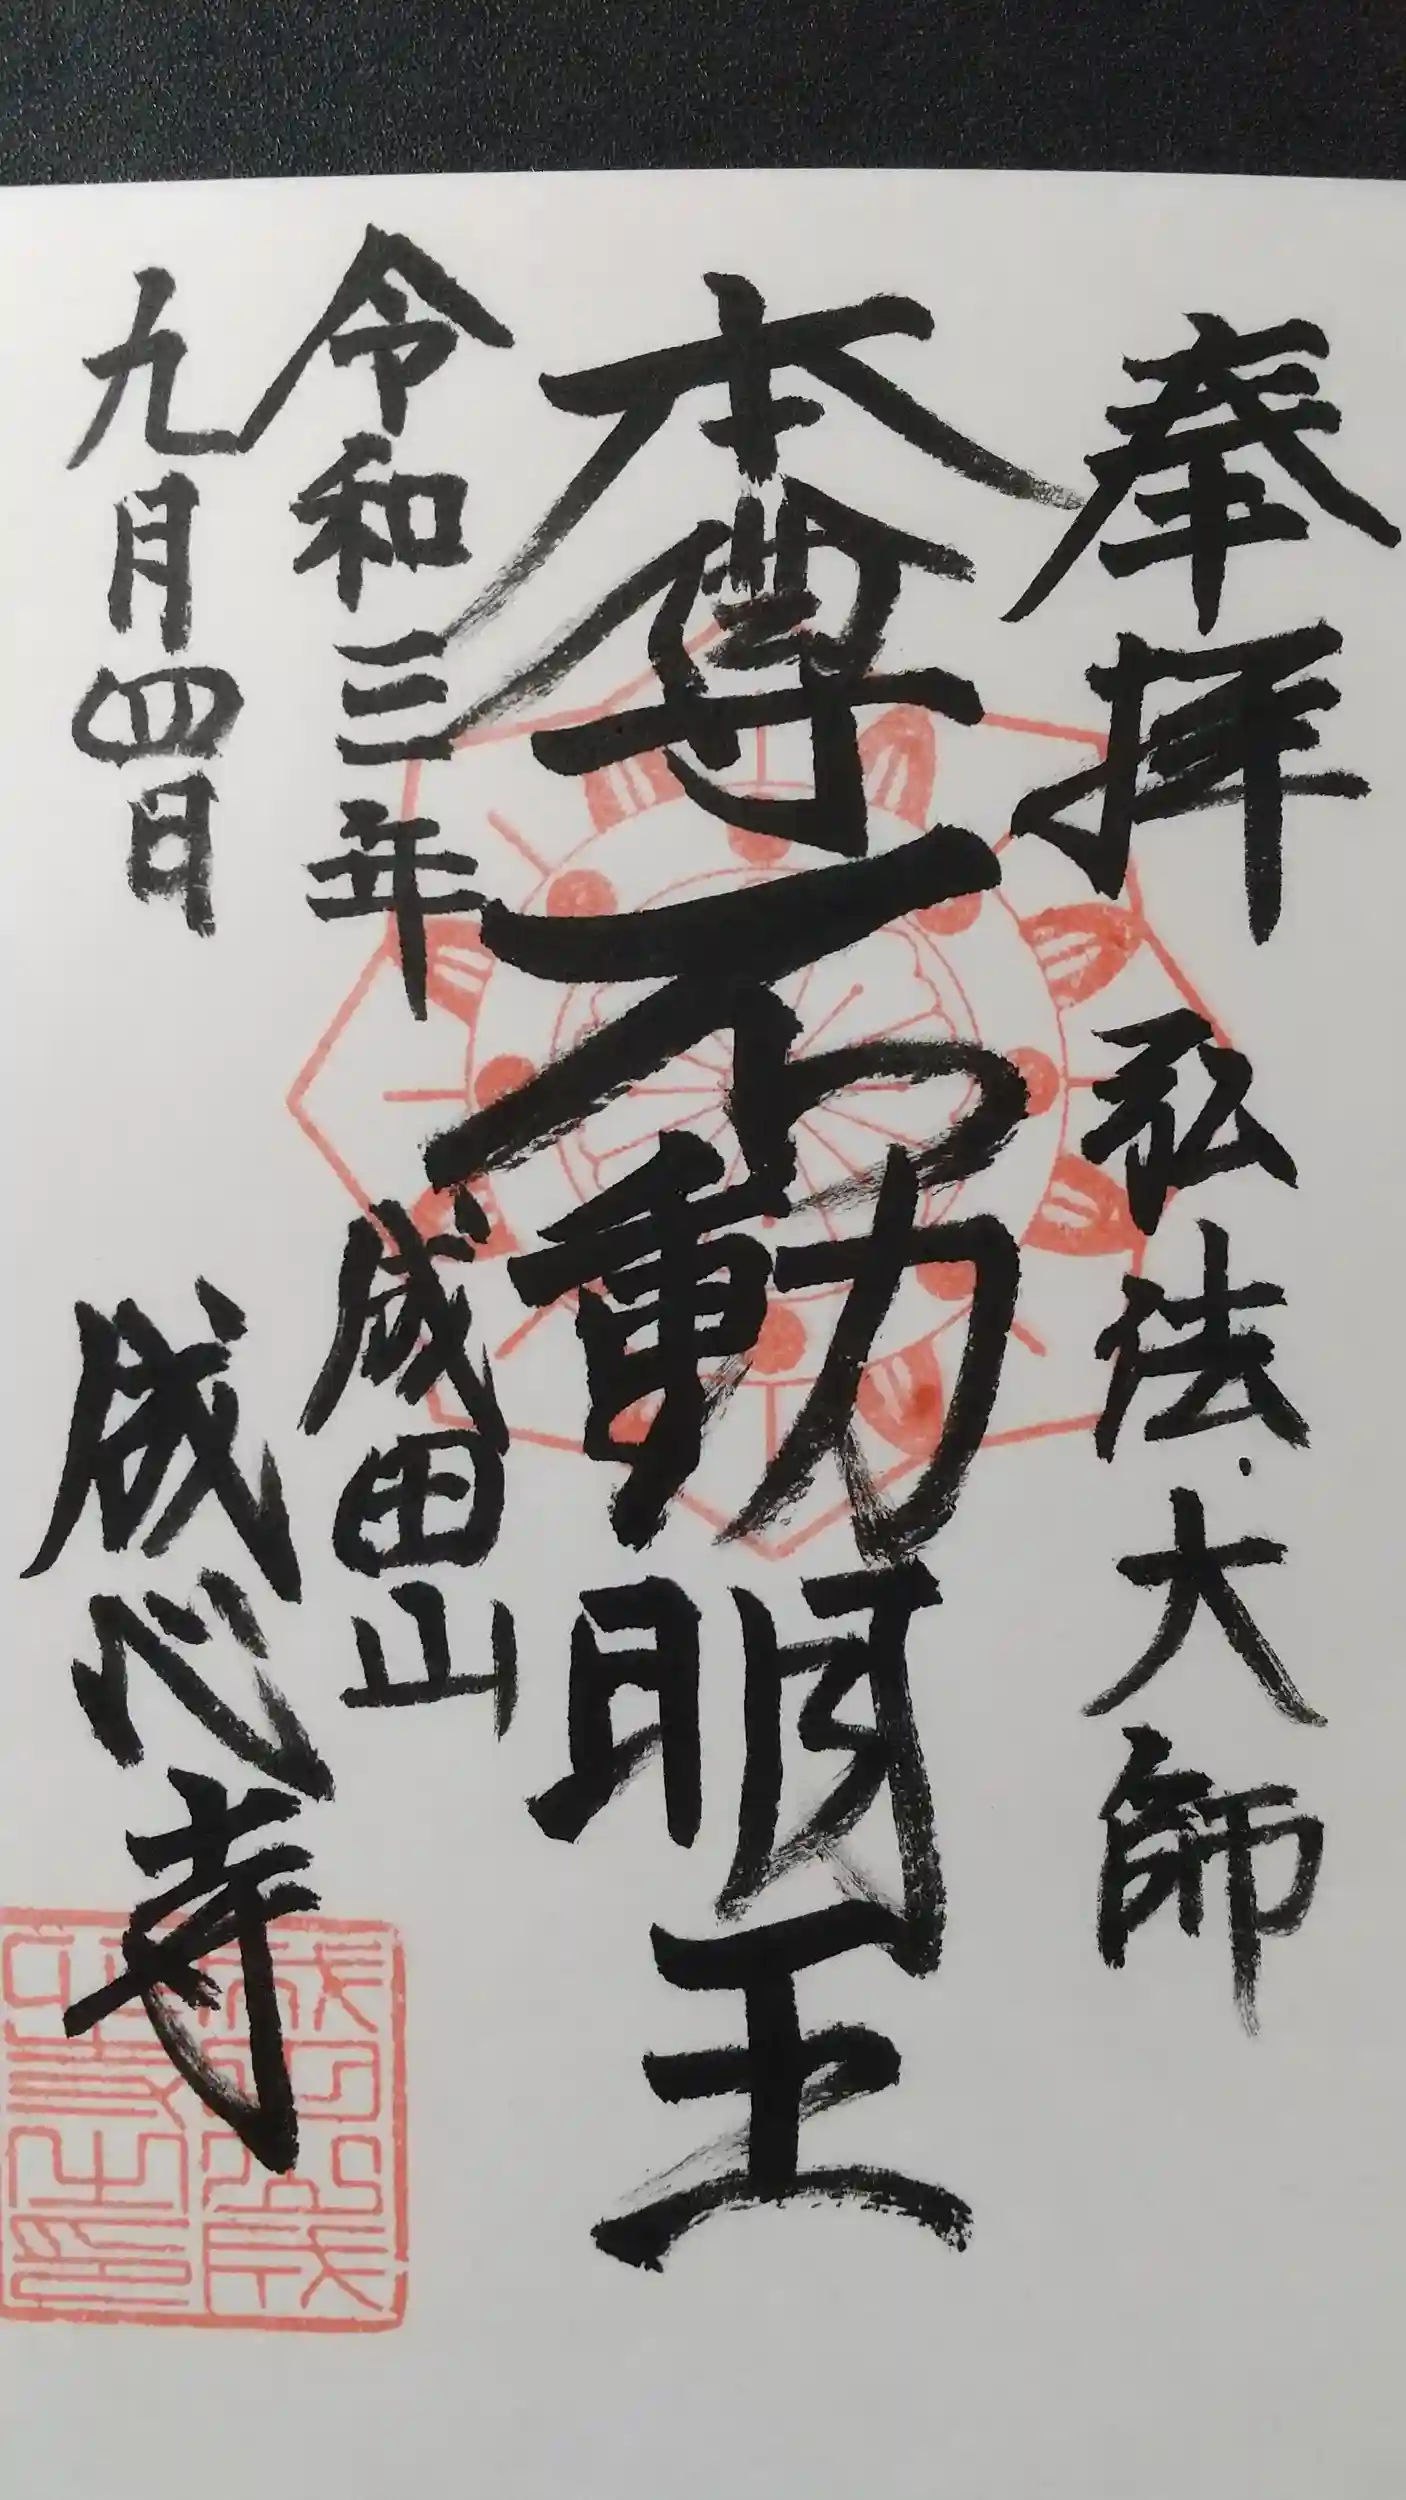 奉拝 弘法大師
本尊不動明王
令和三年 成田山
九月四日 成心寺